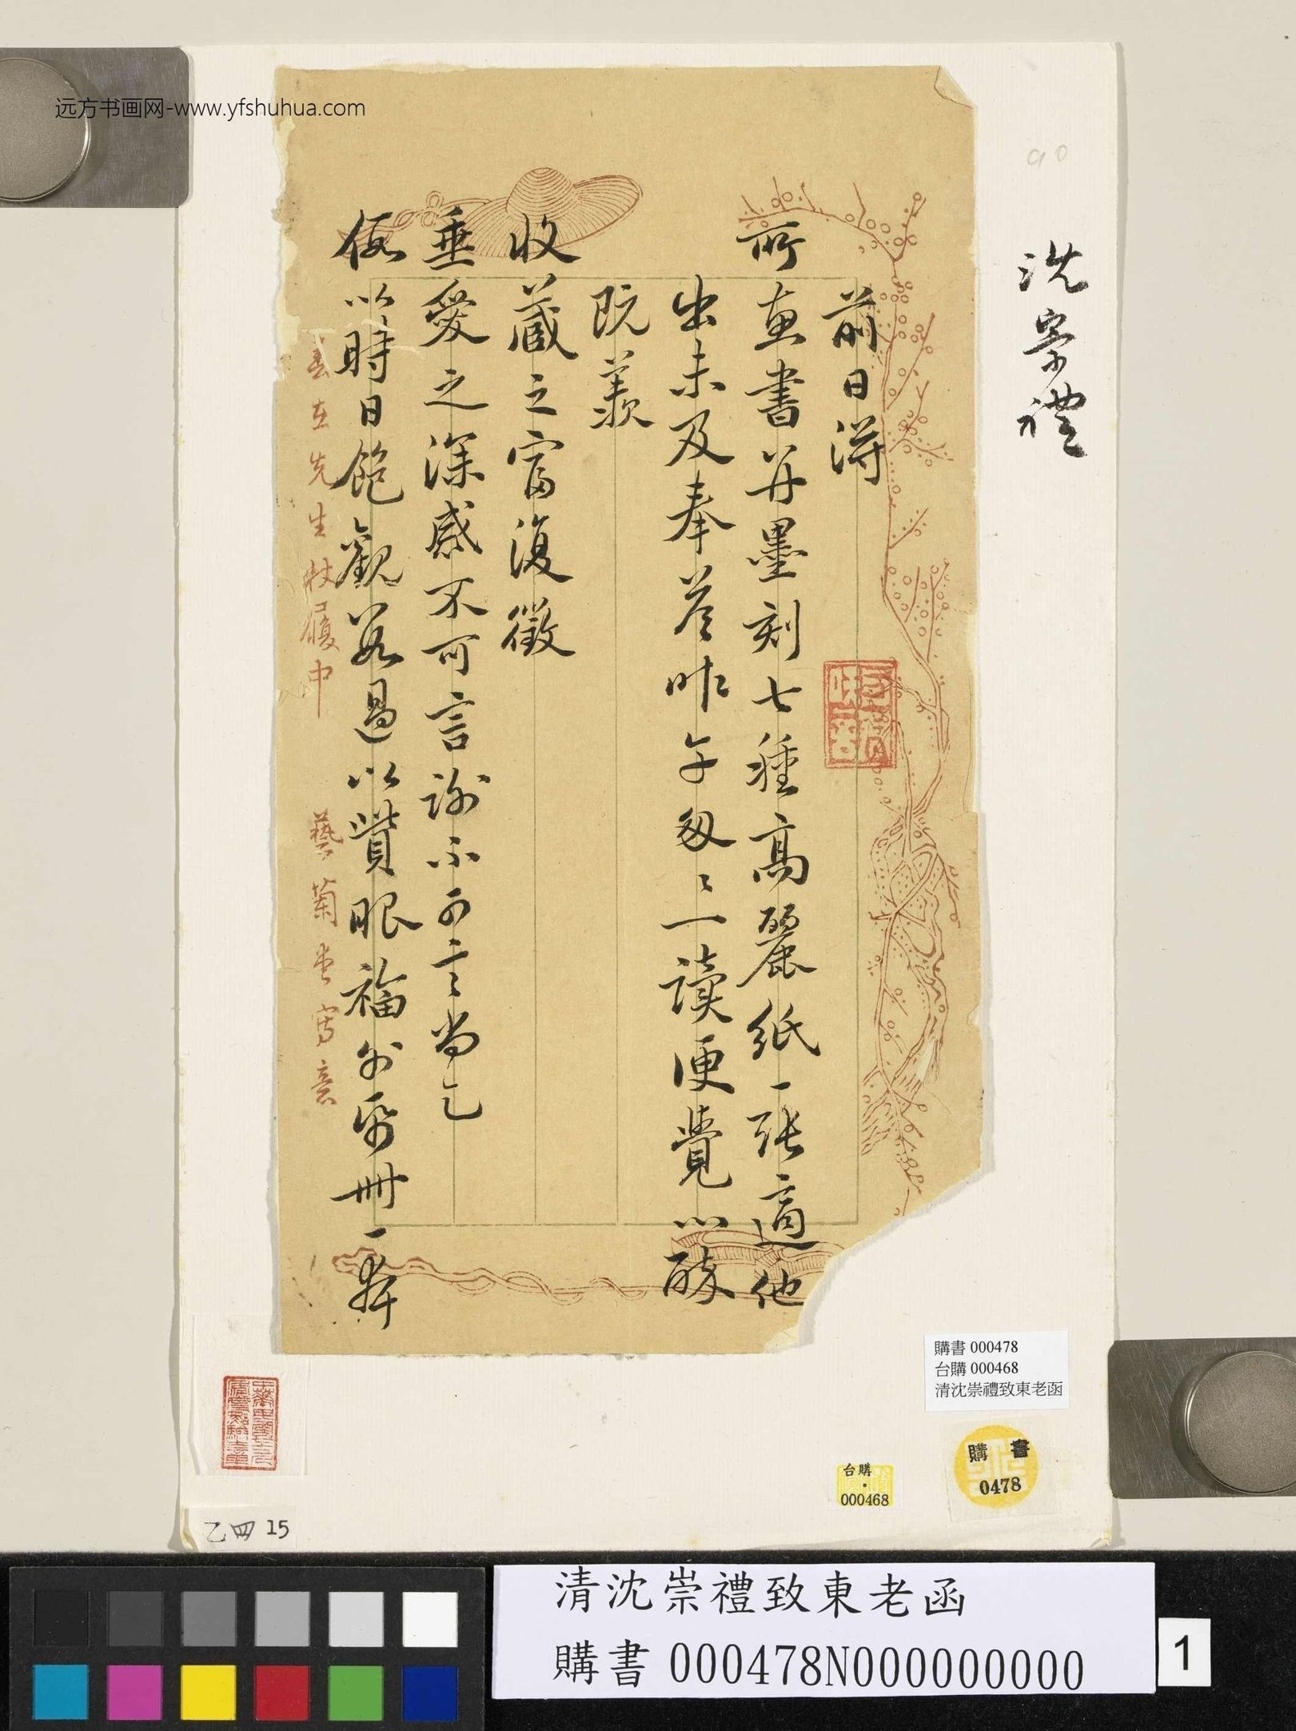 远方书画网-www.yfshuhua.com
沈崇禮
前日得
所惠書并墨刻七種高麗紙一張適他
出未及奉答昨午匆匆一讀便覺心醉
既羨
收藏之富復徵
垂愛之深感不可言謝不可言尚乞
假以時日飽觀數過以償眼福外印冊一奔
春在先生杖履中
藝菊生寫意
購書 000478
台購 000468
清沈崇禮致東老函
購書
0478
台購
000468
乙四 15
清沈崇禮致東老函
購書 000478N000000000
1